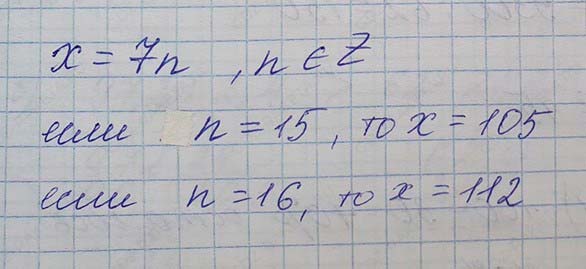 x = 7n , n ∈ Z
если n = 15, то x = 105
если n = 16, то x = 112